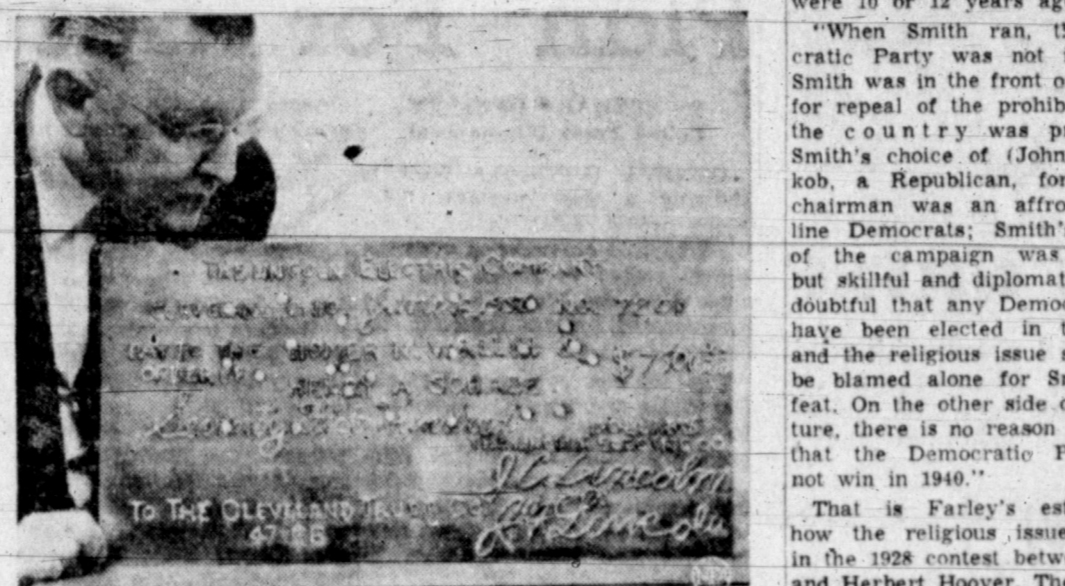 THE LINCOLN ELECTRIC COMPANY
CLEVELAND
No. 7500
ORDER
$7500
TO THE CLEVELAND TRUST CO
J C Lincoln
J F Lincoln
were 10 or 12 years ag
"When Smith ran, t
cratic Party was not
Smith was in the front o
for repeal of the prohib
the country was p
Smith's choice of (John
kob, a Republican, for
chairman was an affro
line Democrats; Smith'
of the campaign was
but skillful and diplomat
doubtful that any Democ
have been elected in t
and the religious issue s
be blamed alone for S
feat. On the other side o
ture, there is no reason
that the Democratic P
not win in 1940."
That is Farley's es
how the religious issue
in the 1928 contest betw
and Herbert Hoover. The